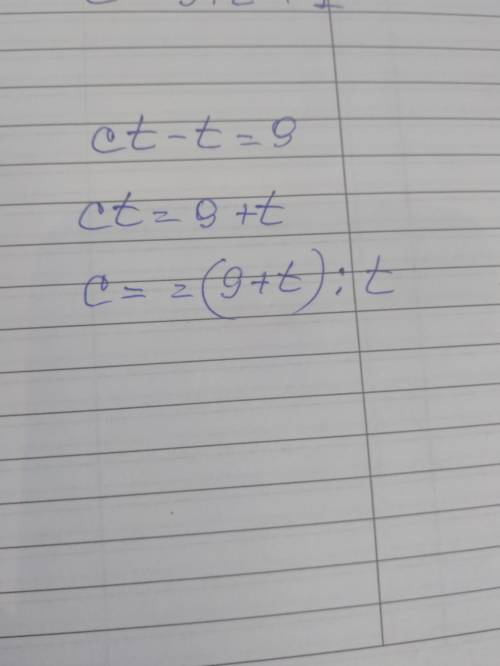 ct - t = 9
ct = 9 + t
c = = (9 + t) : t